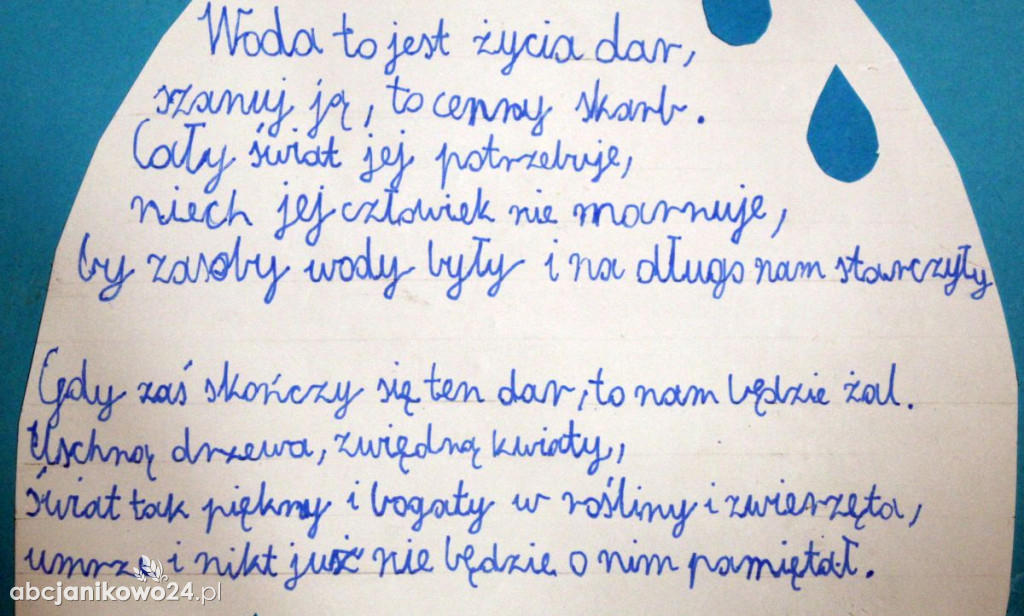 Woda to jest życia dar,
szanuj ją, to cenny skarb.
Cały świat jej potrzebuje,
niech jej człowiek nie marnuje,
by zasoby wody były i na długo nam starczyły
Gdy zaś skończy się ten dar, to nam będzie żal.
Uschną drzewa, zwiędną kwiaty,
świat tak piękny i bogaty w rośliny i zwierzęta,
umrze i nikt już nie będzie o nim pamiętał.
abcjanikowo24.pl